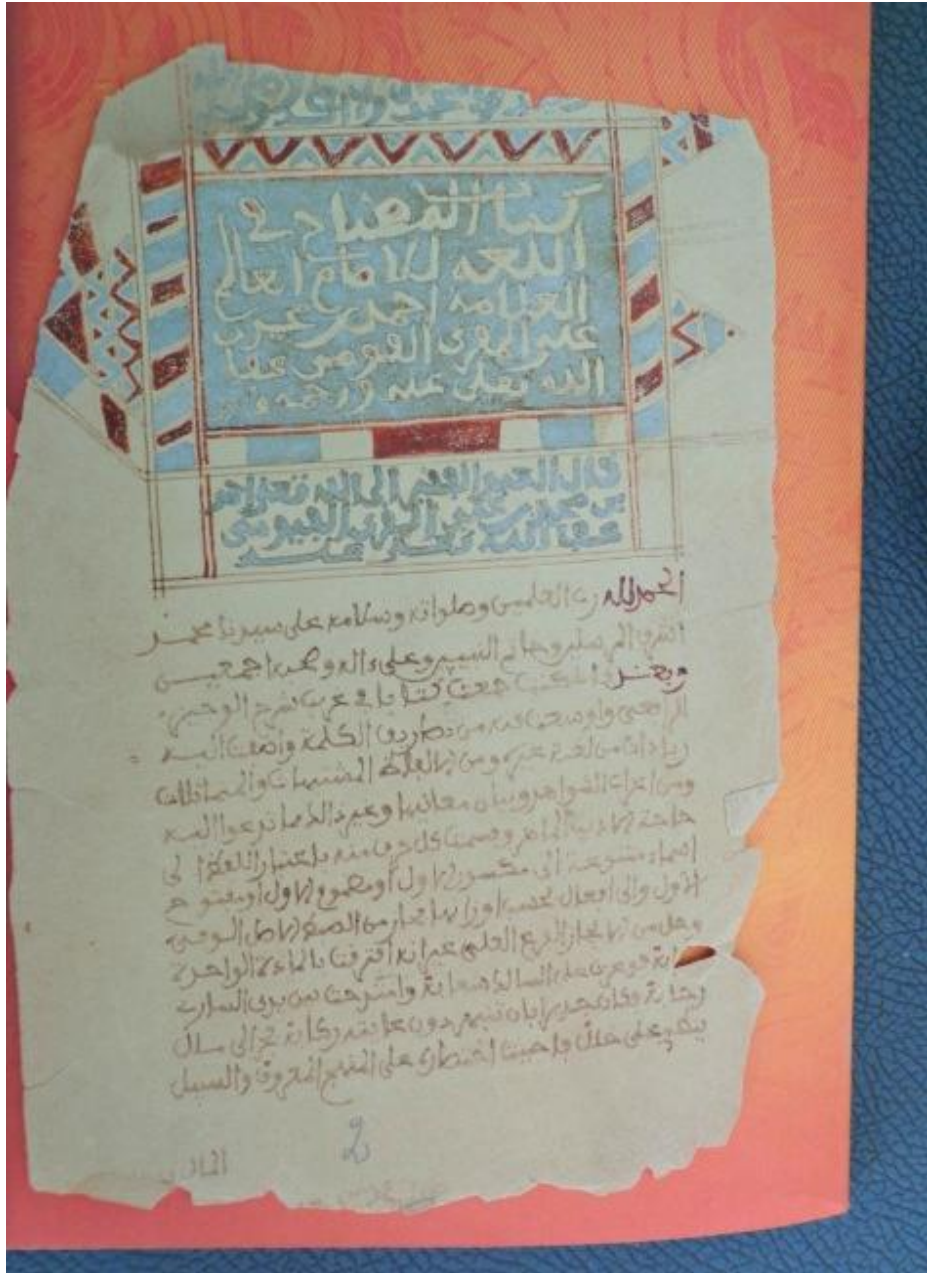 كتاب المصباح في
اللغة للامام العالم
العلامة احمد بن محمد بن
على المقرى الفيومي عفا
الله تعلى عنه ورحمه
قال العبد الفقير الى الله تعلى احمد
بن محمد بن على المقرى الفيومي
عفا الله عنه
الحمد لله رب العلمين وصلواته وسلامه على سيدنا محمد
اشرف المرسلين وخاتم النبيين وعلى ءاله وصحبه اجمعين
وبعد فانى كنت جمعت كتابا في غريب شرح الوجيز
للرافعى واوسعت فيه من تصاريف الكلمة واضفت اليه
زيادات من لغة غيره ومن الالفاظ المشتبهات والمتماثلات
ومن اعراب الشواهد وبيان معانيها وغير ذلك مما تدعوا اليه
حاجة الاديب الماهر وقسمت كل حرف منه باعتبار اللفظ الى
اسماء متنوعة الى مكسور الاول او مضموم الاول او مفتوح
الاول والى افعال بحسب اوزانها فحاز من الضبط الاصل الوفى
وحل من الايجاز الفرع العلى غير انه افترقت بالمادة الواحدة
ابوابه فوعرت على السالك شعابه وامتدحت بين يدى الشادى
رحابه فكان جديرا بان تنبهر دون غايته ركابه فجر الى ملل
ينطوى على خلل فاحببت اختصاره على المنهج المعروف والسبيل
2